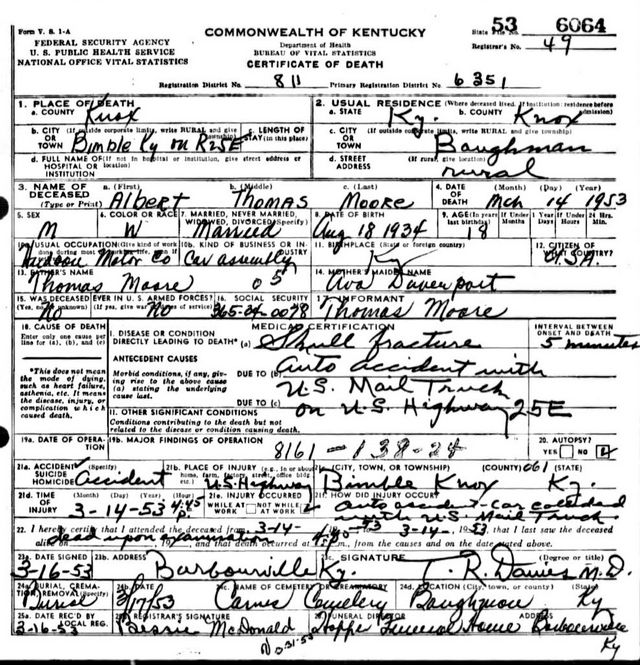 Form V. S. 1-A
COMMONWEALTH OF KENTUCKY
State File No. 53 6064
FEDERAL SECURITY AGENCY
Department of Health
Registrar's No. 49
U. S. PUBLIC HEALTH SERVICE
BUREAU OF VITAL STATISTICS
NATIONAL OFFICE VITAL STATISTICS
CERTIFICATE OF DEATH
Registration District No. 811 Primary Registration District No. 6351
1. PLACE OF DEATH
a. COUNTY Knox
2. USUAL RESIDENCE (Where deceased lived. If institution: residence before admission)
a. STATE Ky. b. COUNTY Knox
b. CITY OR TOWN (If outside corporate limits, write RURAL and give township) Bimble Ky on R25E
c. LENGTH OF STAY (in this place)
c. CITY OR TOWN (If outside corporate limits, write RURAL and give township) Baughman
d. FULL NAME OF HOSPITAL OR INSTITUTION (If not in hospital or institution, give street address or location)
d. STREET ADDRESS (If rural, give location) rural
3. NAME OF DECEASED (Type or Print)
a. (First) Albert b. (Middle) Thomas c. (Last) Moore
4. DATE OF DEATH (Month) (Day) (Year) Mch 14 1953
5. SEX M
6. COLOR OR RACE W
7. MARRIED, NEVER MARRIED, WIDOWED, DIVORCED (Specify) Married
8. DATE OF BIRTH Aug 18 1934
9. AGE (In years last birthday) 18 If Under 1 Year Months Days If Under 24 Hrs. Hours Min.
10a. USUAL OCCUPATION (Give kind of work done during most of working life, even if retired) Hudson Motor Co
10b. KIND OF BUSINESS OR INDUSTRY Car assembly
11. BIRTHPLACE (State or foreign country) Ky
12. CITIZEN OF WHAT COUNTRY? U.S.A.
13. FATHER'S NAME Thomas Moore 05
14. MOTHER'S MAIDEN NAME Ava Davenport
15. WAS DECEASED EVER IN U. S. ARMED FORCES? (Yes, no, or unknown) No (If yes, give war or dates of service) No
16. SOCIAL SECURITY 365-34-0078
17. INFORMANT Thomas Moore
18. CAUSE OF DEATH
Enter only one cause per line for (a), (b), and (c)
MEDICAL CERTIFICATION
INTERVAL BETWEEN ONSET AND DEATH
I. DISEASE OR CONDITION DIRECTLY LEADING TO DEATH* (a) Skull fracture 5 minutes
*This does not mean the mode of dying, such as heart failure, asthenia, etc. It means the disease, injury, or complication which caused death.
ANTECEDENT CAUSES
Morbid conditions, if any, giving rise to the above cause (a) stating the underlying cause last.
DUE TO (b) Auto accident with
U.S. Mail Truck
DUE TO (c) on U.S. Highway 25E
II. OTHER SIGNIFICANT CONDITIONS
Conditions contributing to the death but not related to the disease or condition causing death.
19a. DATE OF OPERATION
19b. MAJOR FINDINGS OF OPERATION
8161-138-24
20. AUTOPSY? YES NO
21a. ACCIDENT SUICIDE HOMICIDE (Specify) Accident
21b. PLACE OF INJURY (e.g., in or about home, farm, factory, street, office bldg., etc.) U.S. Highway
21c. (CITY, TOWN, OR TOWNSHIP) (COUNTY) 061 (STATE)
Bimble Knox Ky.
21d. TIME OF INJURY (Month) (Day) (Year) (Hour) 3-14-53 4:45 P
21e. INJURY OCCURRED WHILE AT WORK NOT WHILE AT WORK
21f. HOW DID INJURY OCCUR? Auto accident - Car collided
with U.S. Mail Truck
22. I hereby certify that I attended the deceased from 3-14-, 53 to 3-14-, 1953, that I last saw the deceased
alive on dead upon examination, 19, and that death occurred at m., from the causes and on the date stated above.
23a. DATE SIGNED 3-16-53
23b. ADDRESS Barbourville Ky.
23c. SIGNATURE (Degree or title) T. R. Davies M.D.
24a. BURIAL, CREMATION, REMOVAL (Specify) Burial
24b. DATE 3/17/53
24c. NAME OF CEMETERY OR CREMATORY Carnes Cemetery
24d. LOCATION (City, town, or county) (State) Baughman Ky
25a. DATE REC'D BY LOCAL REG. 3-16-53
25b. REGISTRAR'S SIGNATURE Bessie McDonald
FUNERAL DIRECTOR ADDRESS Hopper Funeral Home Barbourville Ky